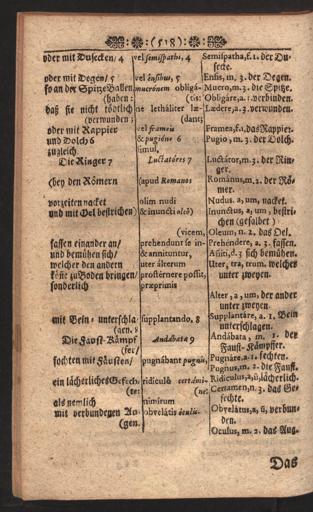 (518)
oder mit Dusecken / 4 vel semispathis, 4 Semispatha, f. 1. der Du-
secke.
oder mit Degen / 5 vel ensibus, 5 Ensis, m. 3. der Degen.
so an der Spitze Ballen mucrónem obligá- Mucro, m. 3. die Spitze.
(haben: (tis; Obligáre, a. 1. verbinden.
daß sie nicht tödtlich ne lethaliter læ- Lædere, a. 3. verwunden.
(verwunden; (dant;
oder mit Rappier vel frameis Framea, f. 1. das Rappier.
und Dolch 6 & pugióne 6 Pugio, m. 3. der Dolch.
zugleich. simul.
Die Ringer 7 Luctatóres 7 Luctátor, m. 3. der Rin-
ger.
(bey den Römern (apud Romanos Románus, m. 2. der Rö-
mer.
vorzeiten nacket olim nudi Nudus. a, um, nacket.
und mit Oel bestrichen) & inuncti oleô) Inunctus, a, um, bestri-
chen (gesalbet)
(vicem, Oleum, n. 2. das Oel.
fassen einander an / prehendunt se in- Prehéndere, a. 3. fassen.
und bemühen sich / & annituntur, Anniti, d. 3. sich bemühen.
welcher den andern uter álterum Uter, tra, trum. welcher
könte zu Boden bringen / prostérnere possit, unter zweyen.
sonderlich præprimis
Alter, a, um, der ander
unter zweyen.
mit Bein-unterschla- supplantando. 8 Supplantáre, a. 1. Bein
(gen. 8 unterschlagen.
Die Faust-Kämpf- Andábata 9 Andábata, m. 1. der
(fer / Faust-Kämpffer.
fochten mit Fäusten / pugnábant pugnis, Pugnáre. a. 1. fechten.
Pugnus, m. 2. die Faust.
ein lächerliches Gefech- ridiculô certámi- Ridiculus, a, û, lächerlich.
(te: (ne: Certamen, n. 3. das Ge-
fechte.
als nemlich nimirum
mit verbundenen Au- obvelátis óculis. Obvelátus, a, û, verbun-
(gen. den.
Oculus, m. 2. das Aug.
Das